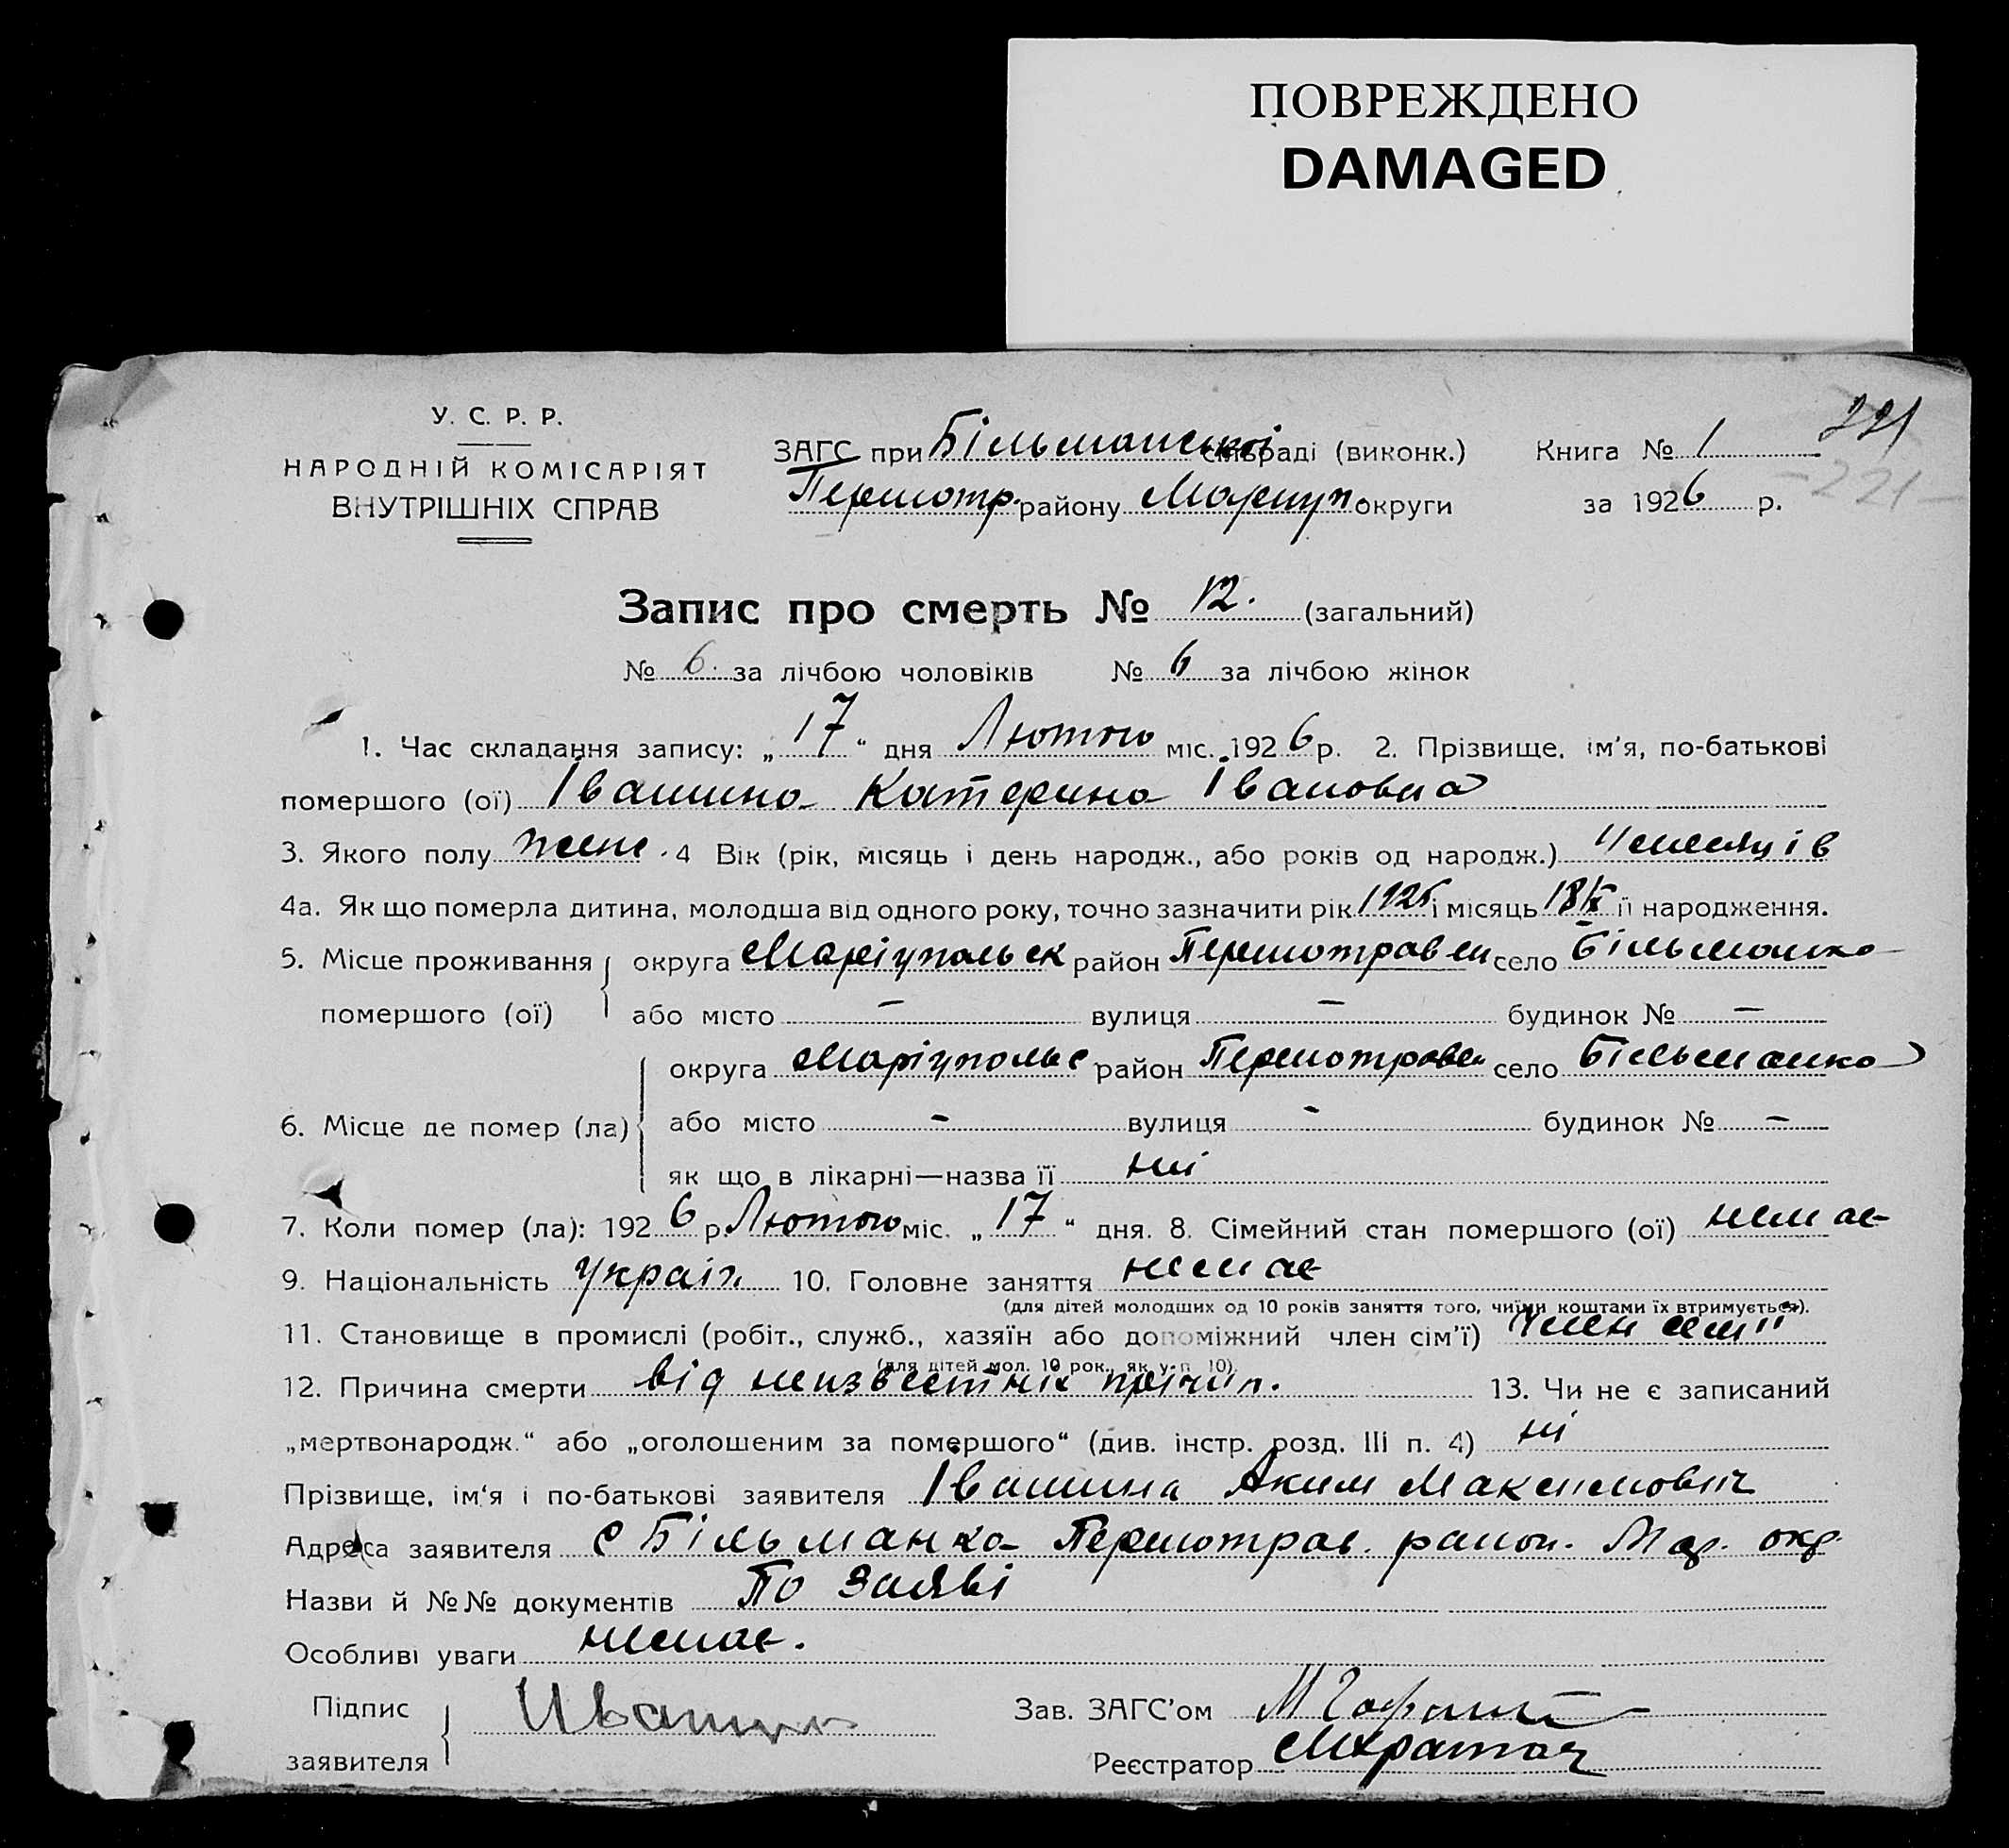 ПОВРЕЖДЕНО
DAMAGED
221
У. С. Р. Р.
НАРОДНІЙ КОМІСАРІЯТ
ВНУТРІШНІХ СПРАВ
ЗАГС при Більманській сільраді (виконк.) Книга № 1
Першотр. району Маріуп. округи за 1926 р.
-221-
Запис про смерть № 12. (загальний)
№ 6. за лічбою чоловіків № 6 за лічбою жінок
1. Час складання запису: „17“ дня Лютого міс. 1926 р. 2. Прізвище, ім'я, по-батькові
помершого (ої) Івашина Катерина Івановна
3. Якого полу жене. 4 Вік (рік, місяць і день народж., або років од народж.) місяців
4а. Як що померла дитина, молодша від одного року, точно зазначити рік 1925 і місяць 18/X її народження.
5. Місце проживання округа Маріупольск район Першотравен село Більманка
помершого (ої) або місто — вулиця — будинок № —
округа Маріупольс район Першотравен село Більманка
6. Місце де помер (ла) або місто - вулиця - будинок № —
як що в лікарні—назва її ні
7. Коли помер (ла): 1926 р. Лютого міс. „17“ дня. 8. Сімейний стан помершого (ої) немає
9. Національність Україн 10. Головне заняття немає
(для дітей молодших од 10 років заняття того, чиїми коштами їх втримується).
11. Становище в промислі (робіт., служб., хазяїн або допоміжний член сім'ї) член семіі
(для дітей мол. 10 рок., як у п. 10)
12. Причина смерти від неизвестніх прічін. 13. Чи не є записаний
„мертвонародж.“ або „оголошеним за помершого“ (див. інстр. розд. III п. 4) ні
Прізвище, ім'я і по-батькові заявителя Івашина Аким Максимович
Адреса заявителя с Більманка Першотрав. район. Мар. окр.
Назви й №№ документів По заяві
Особливі уваги немає.
Підпис Зав. ЗАГС'ом
заявителя Реєстратор